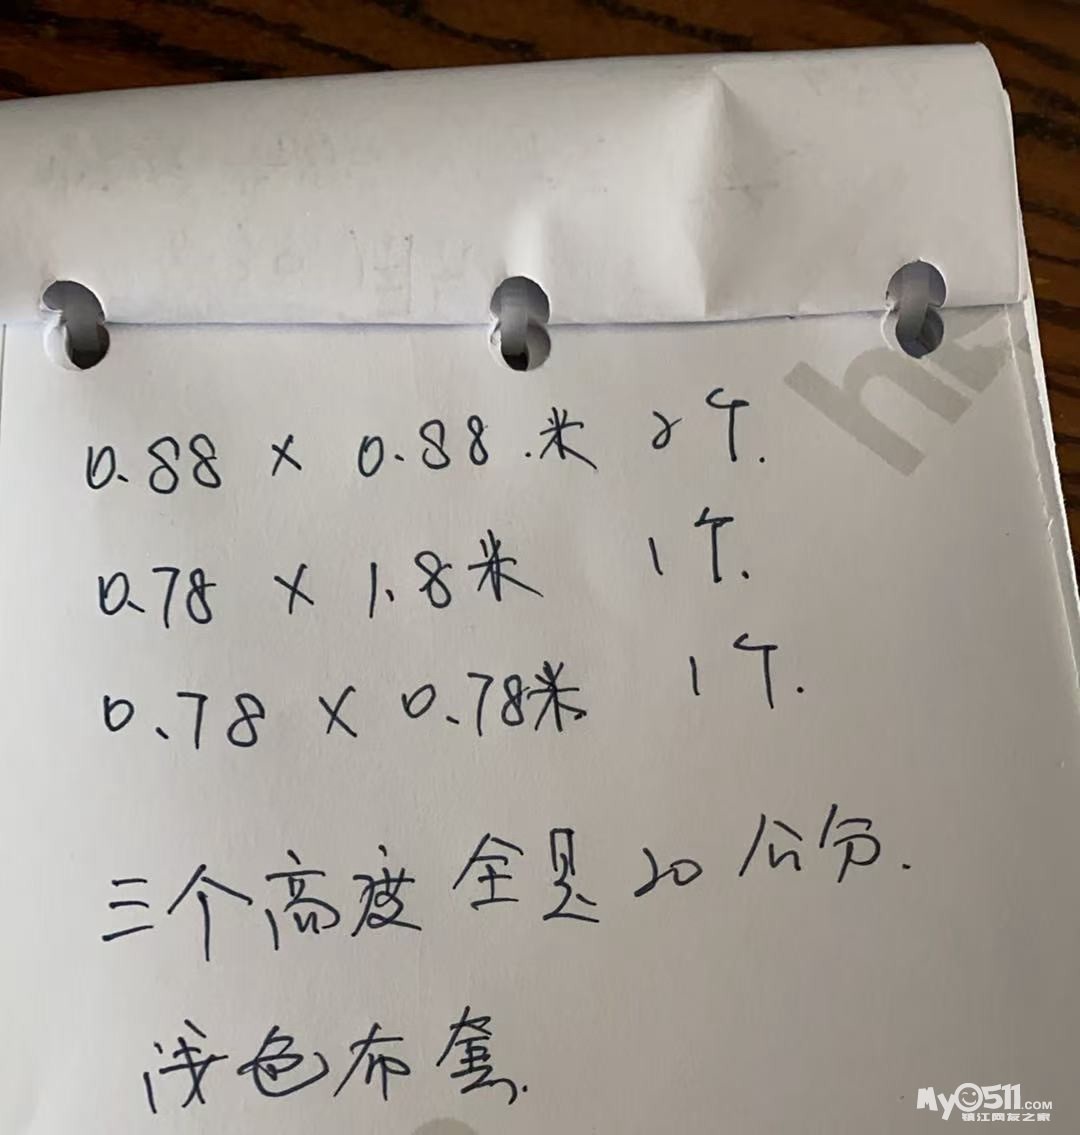 0.88 × 0.88.米 2个.
0.78 × 1.8米 1个.
0.78 × 0.78米 1个.
三个高度全是20公分.
浅色布套.
My0511.COM
镇江网友之家